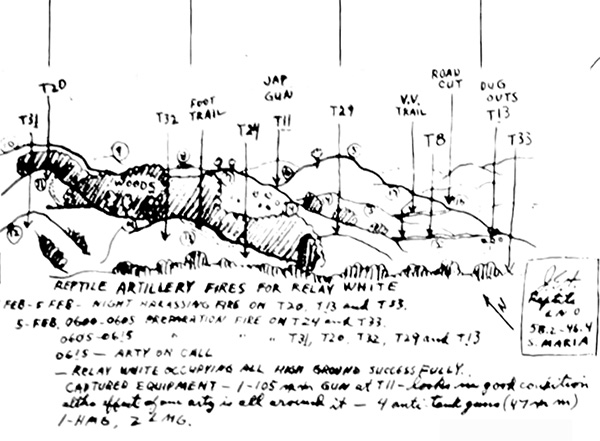 T31
T20
T32
FOOT
TRAIL
T24
JAP
GUN
T11
T29
V.V.
TRAIL
ROAD
CUT
T8
DUG
OUTS
T13
T33
WOODS
REPTILE ARTILLERY FIRES FOR RELAY WHITE
FEB-5 FEB- NIGHT HARASSING FIRE ON T20, T13 and T33.
5-FEB, 0600-0605 PREPARATION FIRE ON T24 and T33.
0605-0615 " " " T31, T20, T32, T29 and T13
0615 - ARTY ON CALL
- RELAY WHITE OCCUPYING ALL HIGH GROUND SUCCESSFULLY.
CAPTURED EQUIPMENT - 1-105 mm GUN at T11 - looks in good condition
altho effect of our arty is all around it - 4 anti-tank guns (47 m m)
1-HMG, 2 LMG.
N
Reptile
LNO
58.2-46.4
S. MARIA